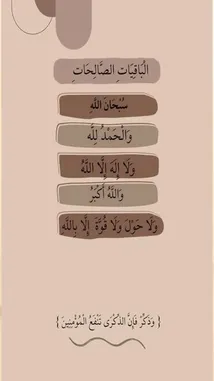 الْبَاقِيَاتِ الصَّالِحَاتِ
سُبْحَانَ اللَّهِ
وَالْحَمْدُ لِلَّه
وَلَا إِلَهَ إِلَّا اللَّهُ
وَاللَّهُ أَكْبَرُ
وَلَا حَوْلَ وَلَا قُوَّةَ إِلَّا بِاللَّهِ
{ وَذَكِّرْ فَإِنَّ الذِّكْرَى تَنْفَعُ الْمُؤْمِنِينَ }